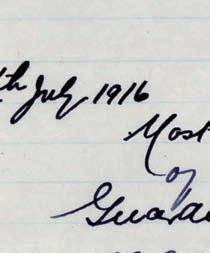 th July 1916
Most
of
Guara